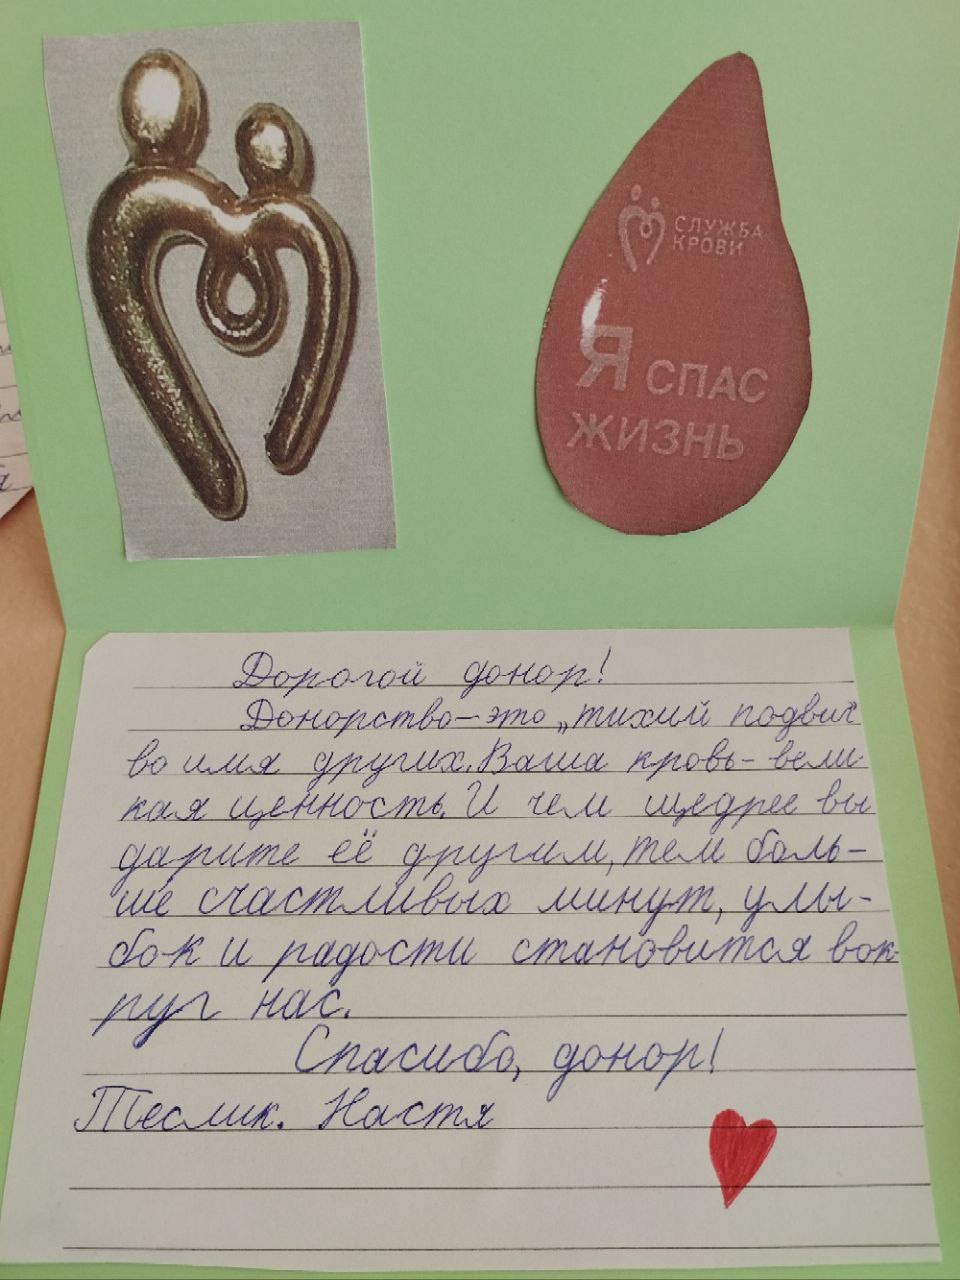 СЛУЖБА
КРОВИ
Я СПАС
ЖИЗНЬ
Дорогой донор!
Донорство – это „тихий подвиг
во имя других. Ваша кровь – вели-
кая ценность. И чем щедрее вы
дарите её другим, тем боль-
ше счастливых минут, улы-
бок и радости становится вок-
руг нас.
Спасибо, донор!
Теслик. Настя